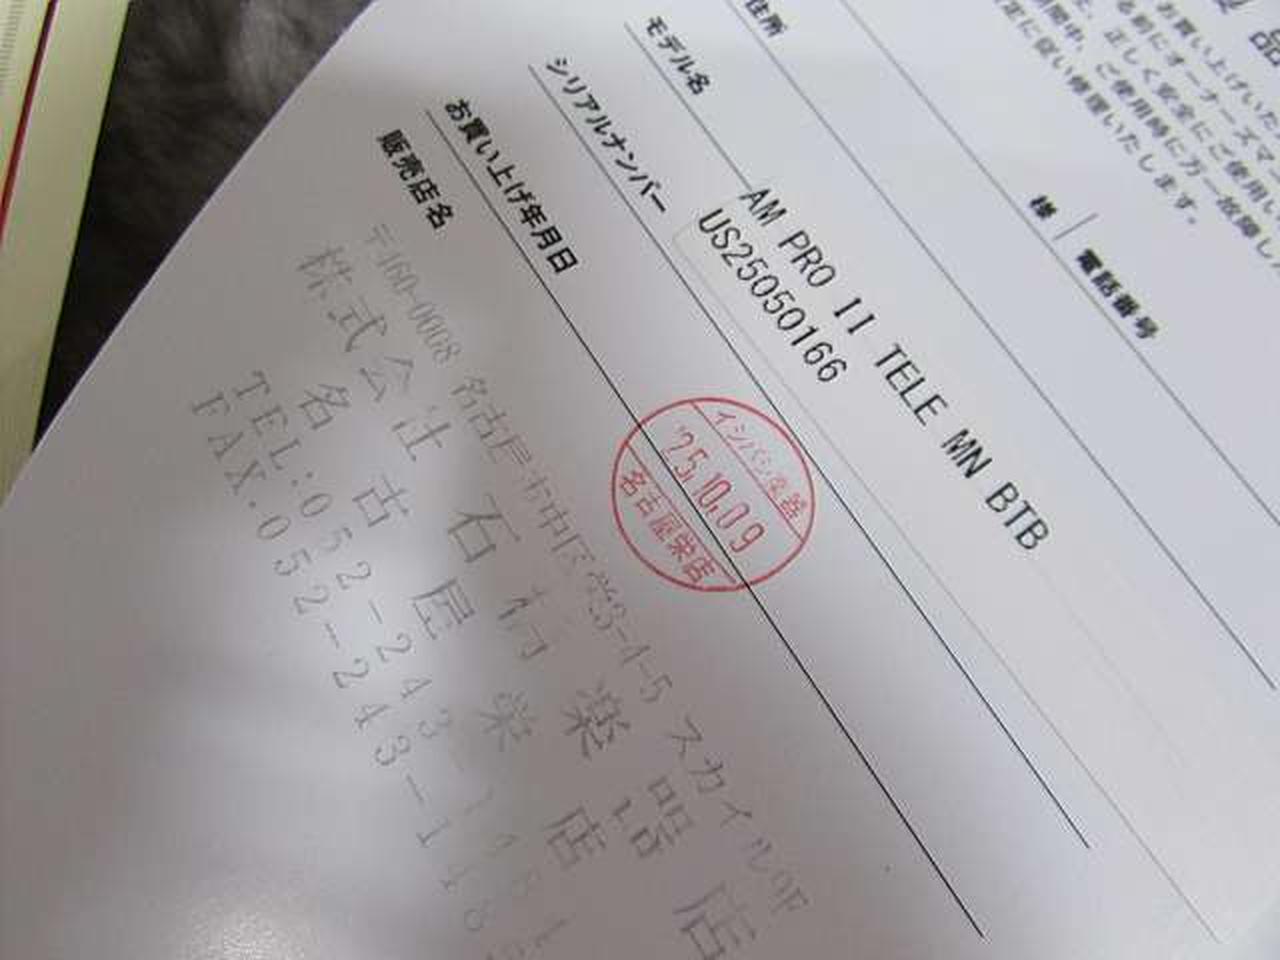 品
お買い上げいた
る前にオーナーズマニ
、正しく安全にご使用い
期間中、ご使用時に万一故障し
正に従い修理いたします。
住所
様 電話番号
モデル名 AM PRO II TELE MN BTB
シリアルナンバー US25050166
お買い上げ年月日
イシバシ楽器
'25.10.09
名古屋栄店
販売店名
〒460-0008 名古屋市中区栄3-4-5 スカイル9F
株式会社 石橋楽器店
名古屋栄店
TEL:052-243-1
FAX.052-243-148